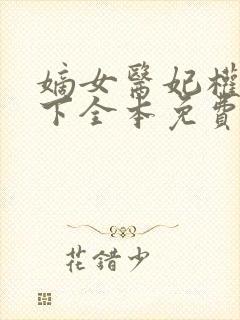 嫡女醫妃權
下全本免費
花錯少